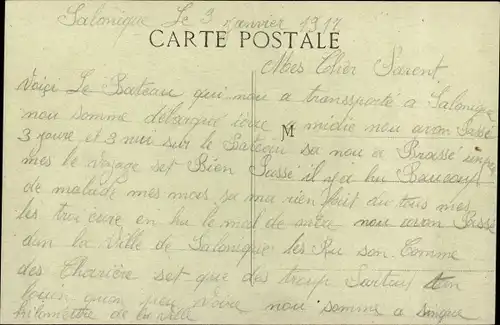 Salonique Le 3 janvier 1917
CARTE POSTALE
Mes Cher Parent
Voici Le Bateau qui nou a transporté a Salonique
nou somme débarqué a midie nou avon Passé
3 jours et 3 nui sur le Bateau sa nou a Brassé
M
mes le voyage set Bien Passé il y a hu Beaucoup
de malade mes moi sa ma rien fait du tous mes
les en hu le mal de nou avon Passé
dan la Ville de Salonique les Ru son Comme
des set que des troup Partou
nou somme a sinque
kilomettre de la ville